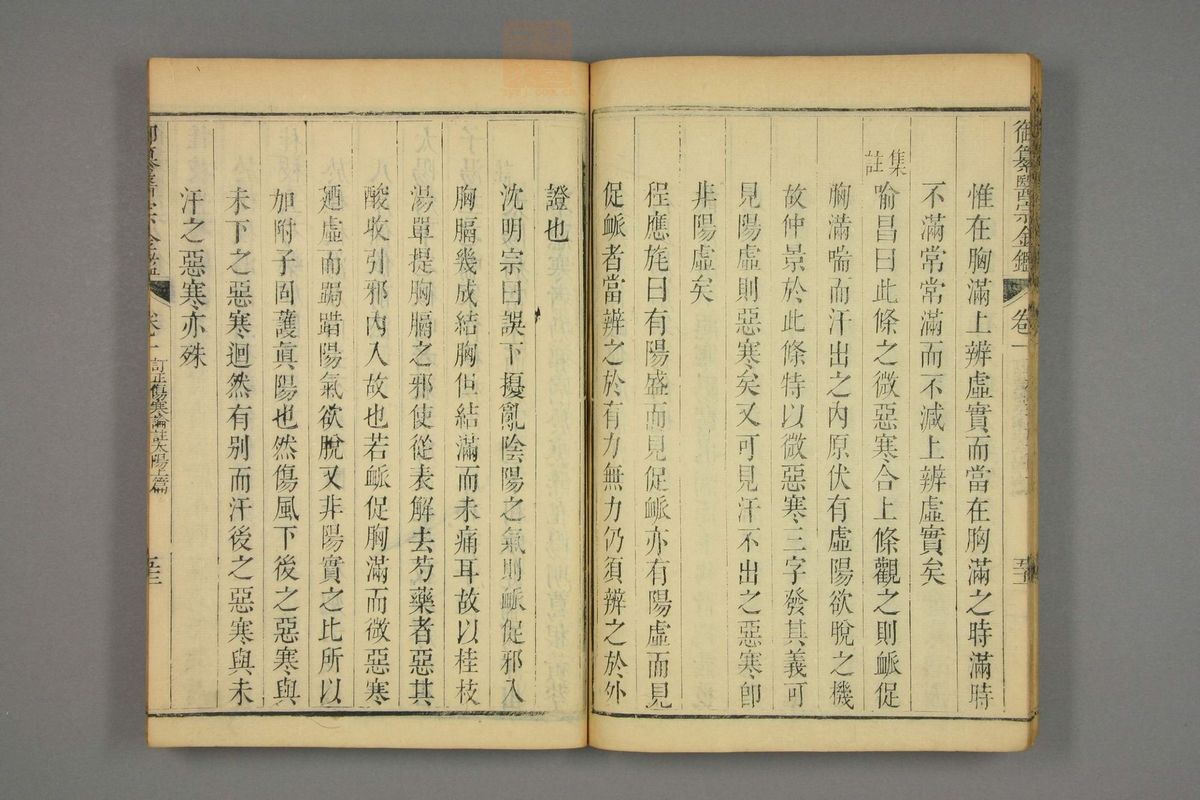 御纂醫宗金鑑 卷一
惟在胸滿上辨虛實而當在胸滿之時滿時
不滿常常滿而不減上辨虛實矣
集註
喻昌曰此條之微惡寒合上條觀之則衇促
胸滿喘而汗出之內原伏有虛陽欲脫之機
故仲景於此條特以微惡寒三字發其義可
見陽虛則惡寒矣又可見汗不出之惡寒卽
非陽虛矣
程應旄曰有陽盛而見促衇亦有陽虛而見
促衇者當辨之於有力無力仍須辨之於外
證也
沈明宗曰誤下擾亂陰陽之氣則衇促邪入
胸膈幾成結胸但結滿而未痛耳故以桂枝
湯單提胸膈之邪使從表解去芍藥者惡其
酸收引邪內入故也若衇促胸滿而微惡寒
廼虛而跼踖陽氣欲脫又非陽實之比所以
加附子固護眞陽也然傷風下後之惡寒與
未下之惡寒迴然有别而汗後之惡寒與未
汗之惡寒亦殊
卷一 訂正傷寒論註太陽上篇 五三